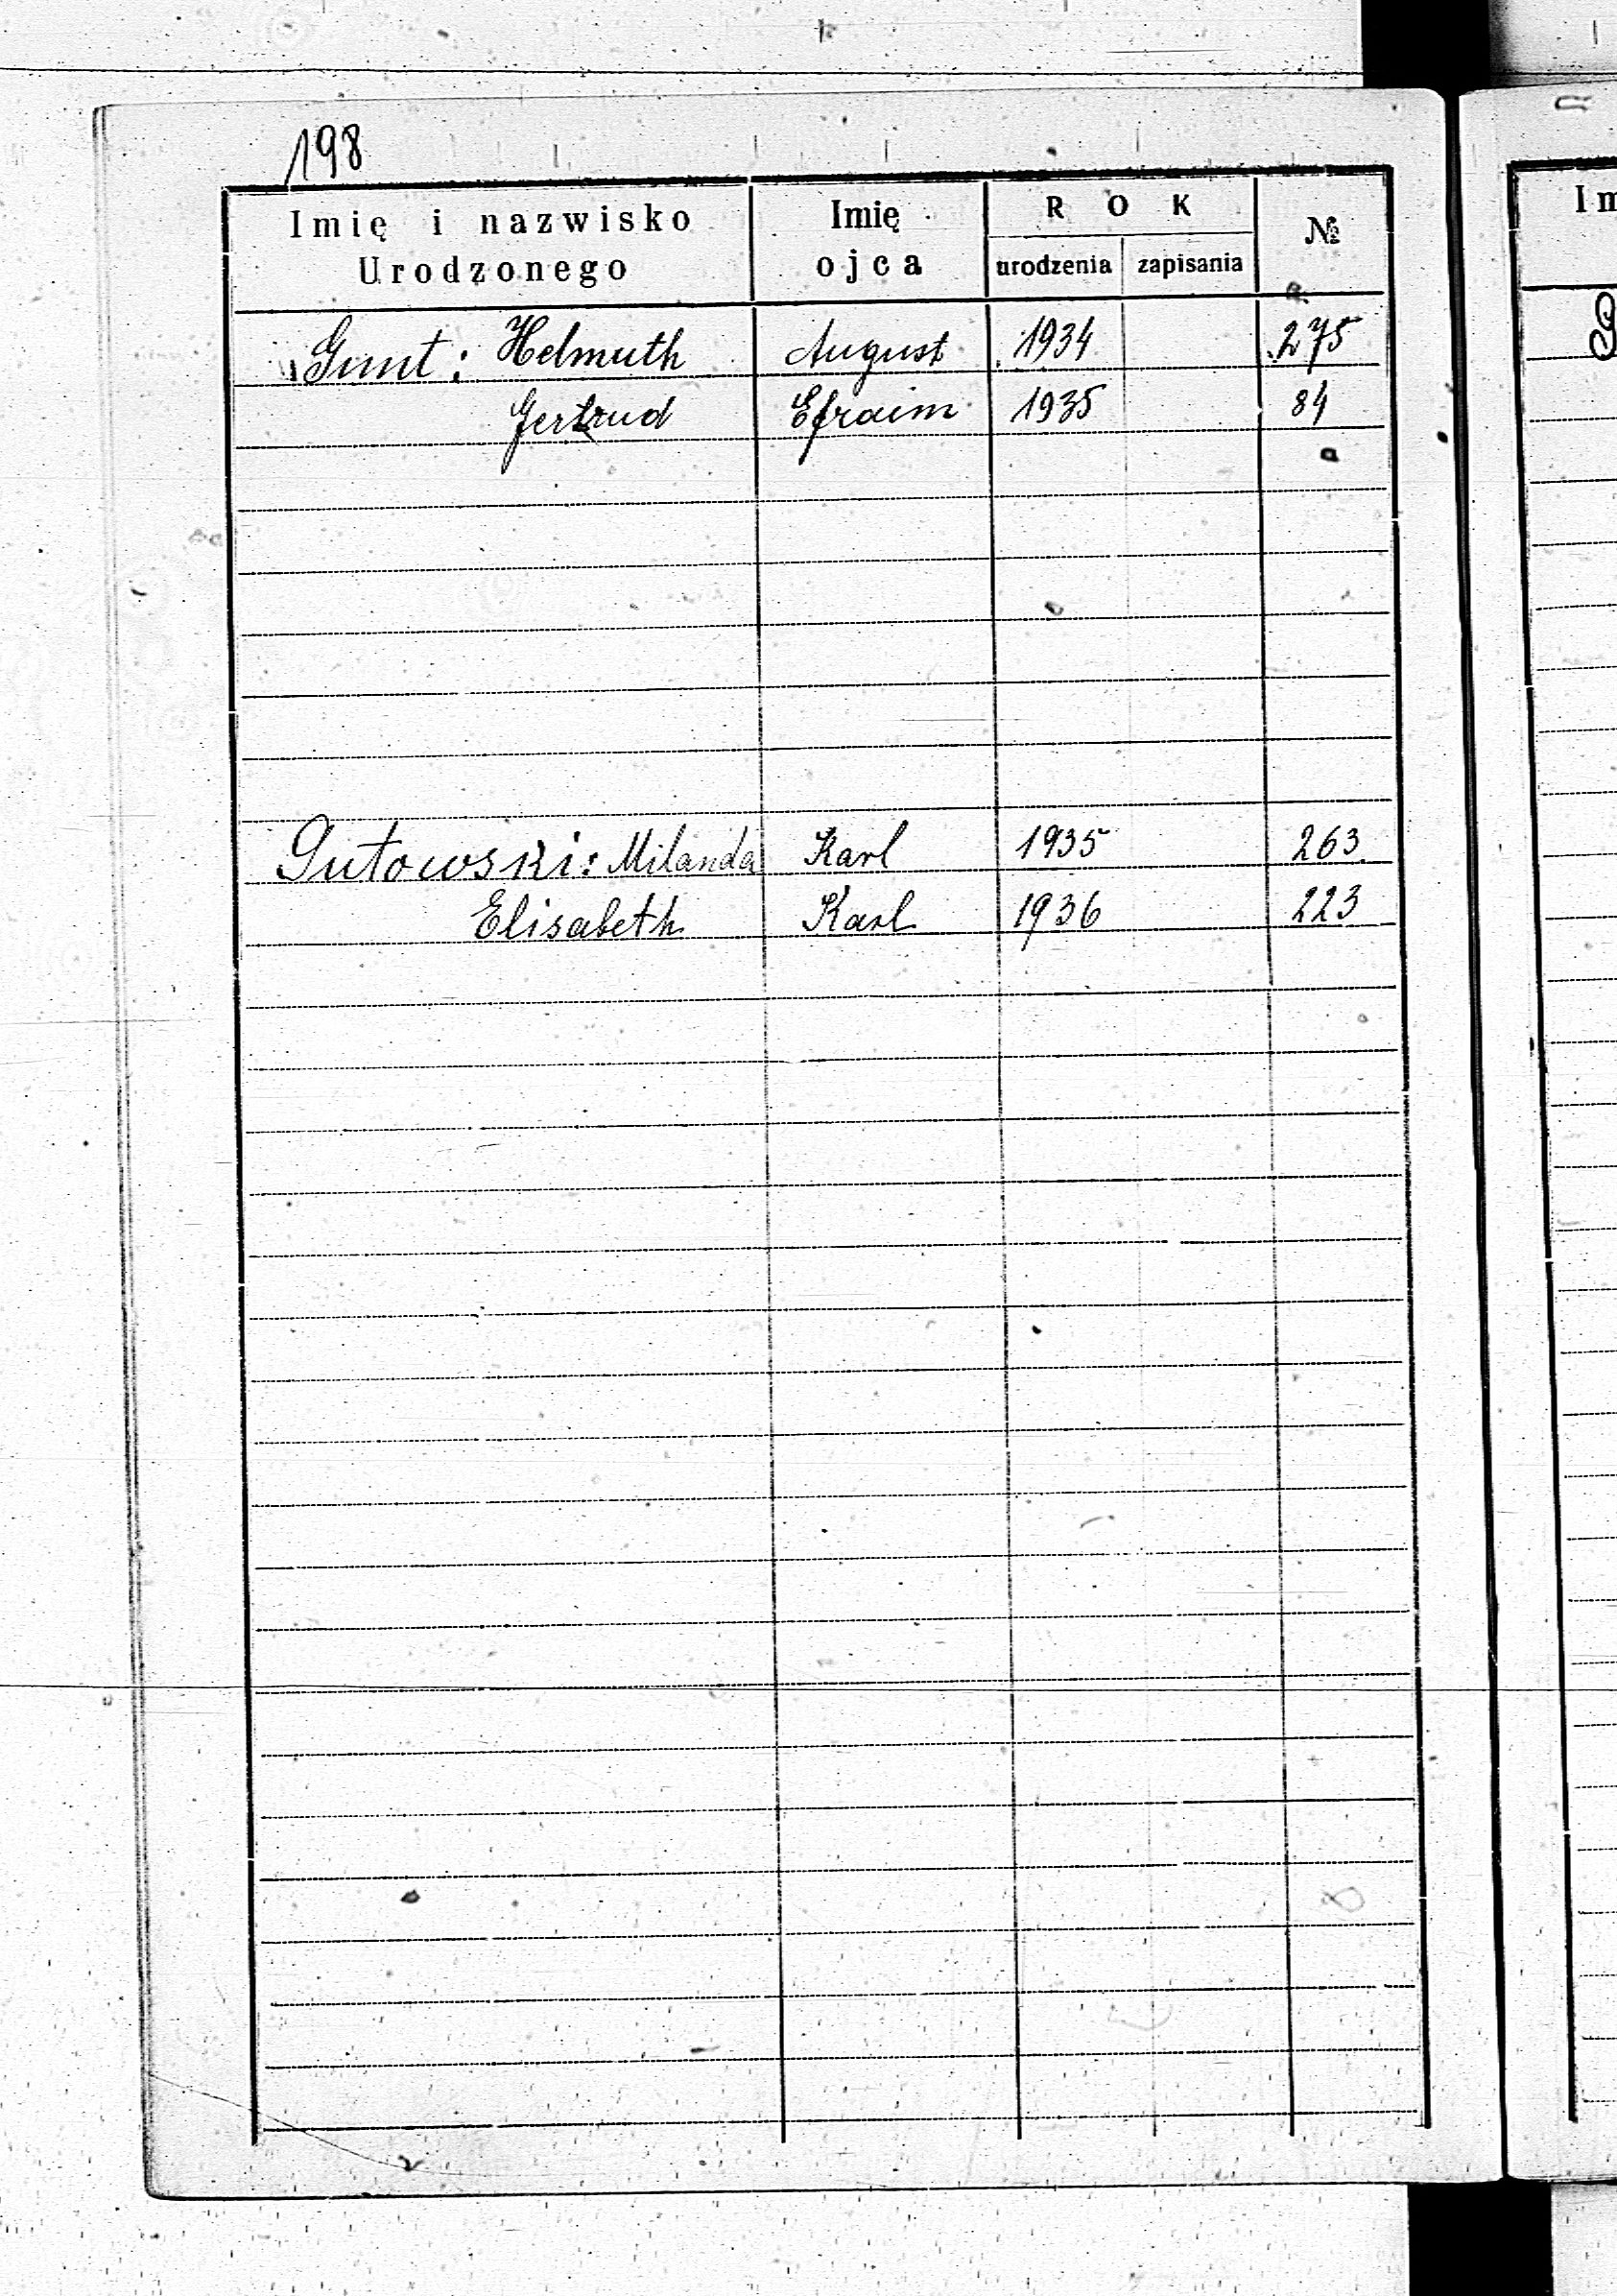 198
Imię i nazwisko Urodzonego | Imię ojca | ROK urodzenia | zapisania | №
Gunt: Helmuth | August | 1934 | | 275
Gertrud | Efraim | 1935 | | 84
Gutowski: Milanda | Karl | 1935 | | 263
Elisabeth | Karl | 1936 | | 223
Im